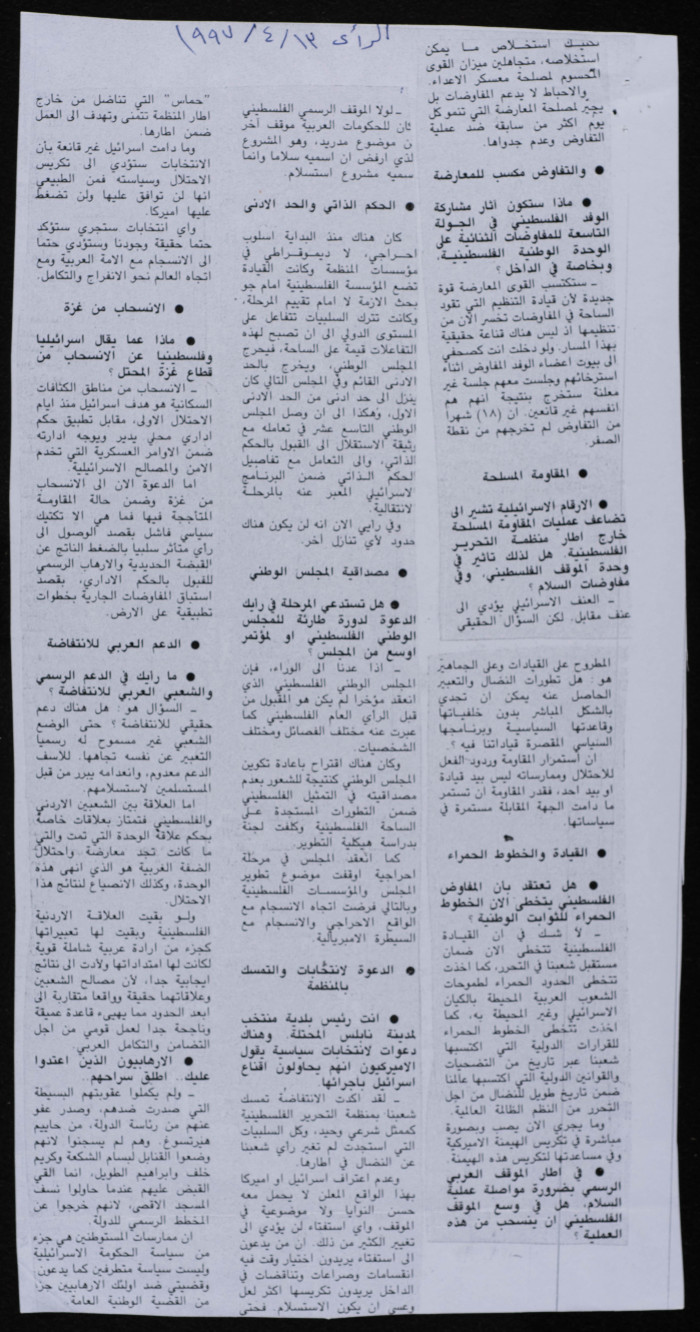 الرأي ١٣/٤/١٩٩٧
نصيبك استخلاص ما يمكن
استخلاصه، متجاهلين ميزان القوى
المحسوم لمصلحة معسكر الاعداء.
والاحباط لا يدعم المفاوضات بل
يجيّر لمصلحة المعارضة التي تنمو كل
يوم اكثر من سابقه ضد عملية
التفاوض وعدم جدواها.
● والتفاوض مكسب للمعارضة
● ماذا ستكون آثار مشاركة
الوفد الفلسطيني في الجولة
التاسعة للمفاوضات الثنائية على
الوحدة الوطنية الفلسطينية،
وبخاصة في الداخل؟
ـ ستكتسب القوى المعارضة قوة
جديدة لأن قيادة التنظيم التي تقود
الساحة في المفاوضات تخسر الآن من
تنظيمها اذ ليس هناك قناعة حقيقية
بهذا المسار. ولو دخلت انت كصحفي
الى بيوت اعضاء الوفد المفاوض اثناء
استرخائهم وجلست معهم جلسة غير
معلنة ستخرج بنتيجة انهم هم
انفسهم غير قانعين. ان (١٨) شهراً
من التفاوض لم تخرجهم من نقطة
الصفر.
● المقاومة المسلحة
● الارقام الاسرائيلية تشير الى
تضاعف عمليات المقاومة المسلحة
خارج اطار منظمة التحرير
الفلسطينية. هل لذلك تأثير في
وحدة الموقف الفلسطيني، وفي
مفاوضات السلام؟
ـ العنف الاسرائيلي يؤدي الى
عنف مقابل. لكن السؤال الحقيقي
المطروح على القيادات وعلى الجماهير
هو: هل تطورات النضال والتعبير
الحاصل عنه يمكن ان تحدي
بالشكل المباشر بدون خلفياتها
وقاعدتها السياسية وبرنامجها
السياسي المقصرة قياداتنا فيه؟.
ان استمرار المقاومة وردود الفعل
للاحتلال وممارساته ليس بيد قيادة
او بيد احد، فقدر المقاومة ان تستمر
ما دامت الجهة المقابلة مستمرة في
سياساتها.
● القيادة والخطوط الحمراء
● هل تعتقد بأن المفاوض
الفلسطيني يتخطى الآن الخطوط
الحمراء للثوابت الوطنية؟
ـ لا شك في ان القيادة
الفلسطينية تتخطى الان ضمان
مستقبل شعبنا في التحرر، كما اخذت
تتخطى الحدود الحمراء لطموحات
الشعوب العربية المحيطة بالكيان
الاسرائيلي وغير المحيطة به. كما
اخذت تتخطى الخطوط الحمراء
للقرارات الدولية التي اكتسبها
شعبنا عبر تاريخ من التضحيات
والقوانين الدولية التي اكتسبها عالمنا
ضمن تاريخ طويل للنضال من اجل
التحرر من النظم الظالمة العالمية.
وما يجري الان يصب وبصورة
مباشرة في تكريس الهيمنة الاميركية
وفي مساعدتها لتكريس هذه الهيمنة.
● في اطار الموقف العربي
الرسمي بضرورة مواصلة عملية
السلام، هل في وسع الموقف
الفلسطيني ان ينسحب من هذه
العملية؟
ـ لولا الموقف الرسمي الفلسطيني
كان للحكومات العربية موقف آخر
ن موضوع مدريد، وهو المشروع
لذي ارفض ان اسميه سلاما وانما
سميه مشروع استسلام.
● الحكم الذاتي والحد الادنى
كان هناك منذ البداية اسلوب
احراجي، لا ديموقراطي في
مؤسسات المنظمة وكانت القيادة
تضع المؤسسة الفلسطينية امام جو
بحث الازمة لا امام تقييم المرحلة،
وكانت تترك السلبيات تتفاعل على
المستوى الدولي الى ان تصبح لهذه
التفاعلات قيمة على الساحة، فيحرج
المجلس الوطني، ويخرج بالحد
الادنى القائم وفي المجلس التالي كان
ينزل الى حد ادنى من الحد الادنى
الاول، وهكذا الى ان وصل المجلس
الوطني التاسع عشر في تعامله مع
وثيقة الاستقلال الى القبول بالحكم
الذاتي، والى التعامل مع تفاصيل
لحكم الذاتي ضمن البرنامج
لاسرائيلي المعبر عنه بالمرحلة
لانتقالية.
وفي رأيي الان انه لن يكون هناك
حدود لأي تنازل آخر.
● مصداقية المجلس الوطني
● هل تستدعي المرحلة في رأيك
الدعوة لدورة طارئة للمجلس
الوطني الفلسطيني او لمؤتمر
اوسع من المجلس؟
ـ اذا عدنا الى الوراء، فإن
المجلس الوطني الفلسطيني الذي
انعقد مؤخرا لم يكن هو المقبول من
قبل الرأي العام الفلسطيني كما
عبرت عنه مختلف الفصائل ومختلف
الشخصيات.
وكان هناك اقتراح باعادة تكوين
المجلس الوطني كنتيجة للشعور بعدم
مصداقيته في التمثيل الفلسطيني
ضمن التطورات المستجدة على
الساحة الفلسطينية وكلفت لجنة
بدراسة هيكلية التطوير.
كما انعقد المجلس في مرحلة
احراجية اوقفت موضوع تطوير
المجلس والمؤسسات الفلسطينية
وبالتالي فرضت اتجاه الانسجام مع
الواقع الاحراجي والانسجام مع
السيطرة الامبريالية.
● الدعوة لانتخابات والتمسك
بالمنظمة
● انت رئيس بلدية منتخب
لمدينة نابلس المحتلة. وهناك
دعوات لانتخابات سياسية يقول
الاميركيون انهم يحاولون اقناع
اسرائيل بأجرائها.
ـ لقد اكدت الانتفاضة تمسك
شعبنا بمنظمة التحرير الفلسطينية
كممثل شرعي وحيد، وكل السلبيات
التي استجدت لم تغير رأي شعبنا
عن النضال في اطارها.
وعدم اعتراف اسرائيل او اميركا
بهذا الواقع المعلن لا يحمل معه
حسن النوايا ولا موضوعية في
الموقف، واي استفتاء لن يؤدي الى
تغيير الكثير من ذلك. ان من يدعون
الى استفتاء يريدون اختيار وقت فيه
انقسامات وصراعات وتناقضات في
الداخل يريدون تكريسها اكثر لعل
وعسى ان يكون الاستسلام. فحتى
"حماس" التي تناضل من خارج
اطار المنظمة تتمنى وتهدف الى العمل
ضمن اطارها.
وما دامت اسرائيل غير قانعة بأن
الانتخابات ستؤدي الى تكريس
الاحتلال وسياسته فمن الطبيعي
انها لن توافق عليها ولن تضغط
عليها اميركا.
وأي انتخابات ستجري ستؤكد
حتما حقيقة وجودنا وستؤدي حتما
الى الانسجام مع الامة العربية ومع
اتجاه العالم نحو الانفراج والتكامل.
● الانسحاب من غزة
● ماذا عما يقال اسرائيليا
وفلسطينيا عن الانسحاب من
قطاع غزة المحتل؟
ـ الانسحاب من مناطق الكثافات
السكانية هو هدف اسرائيل منذ ايام
الاحتلال الاولى، مقابل تطبيق حكم
اداري محلي يدير ويوجه ادارته
ضمن الاوامر العسكرية التي تخدم
الامن والمصالح الاسرائيلية.
اما الدعوة الان الى الانسحاب
من غزة وضمن حالة المقاومة
المتأججة فيها فما هي الا تكتيك
سياسي فاشل بقصد الوصول الى
رأي متأثر سلبيا بالضغط الناتج عن
القبضة الحديدية والارهاب الرسمي
للقبول بالحكم الاداري، بقصد
استباق المفاوضات الجارية بخطوات
تطبيقية على الارض.
● الدعم العربي للانتفاضة
● ما رأيك في الدعم الرسمي
والشعبي العربي للانتفاضة؟
ـ السؤال هو: هل هناك دعم
حقيقي للانتفاضة؟ حتى الوضع
الشعبي غير مسموح له رسميا
التعبير عن نفسه تجاهها. للأسف
الدعم معدوم، وانعدامه يبرر من قبل
المستسلمين لاستسلامهم.
اما العلاقة بين الشعبين الاردني
والفلسطيني فتمتاز بعلاقات خاصة
بحكم علاقة الوحدة التي تمت والتي
ما كانت تجد معارضة واحتلال
الضفة الغربية هو الذي انهى هذه
الوحدة، وكذلك الانصياع لنتائج هذا
الاحتلال.
ولو بقيت العلاقة الاردنية
الفلسطينية وبقيت لها تعبيراتها
كجزء من ارادة عربية شاملة قوية
لكانت لها امتداداتها ولأدت الى نتائج
ايجابية جدا، لأن مصالح الشعبين
وعلاقاتهما حقيقة وواقعا متقاربة الى
ابعد الحدود مما يهيىء قاعدة عميقة
وناجحة جدا لعمل قومي من اجل
التضامن والتكامل العربي.
● الارهابيون الذين اعتدوا
عليك.. اطلق سراحهم.
ـ ولم يكملوا عقوبتهم البسيطة
التي صدرت ضدهم، وصدر عفو
عنهم من رئاسة الدولة، من حاييم
هيرتسوغ. وهم لم يسجنوا لانهم
وضعوا القنابل لبسام الشكعة وكريم
خلف وابراهيم الطويل، انما القي
القبض عليهم عندما حاولوا نسف
المسجد الاقصى، لانهم خرجوا عن
المخطط الرسمي للدولة.
ان ممارسات المستوطنين هي جزء
من سياسة الحكومة الاسرائيلية
وليست سياسة متطرفين كما يدعون.
وقضيتي ضد اولئك الارهابيين جزء
من القضية الوطنية العامة.